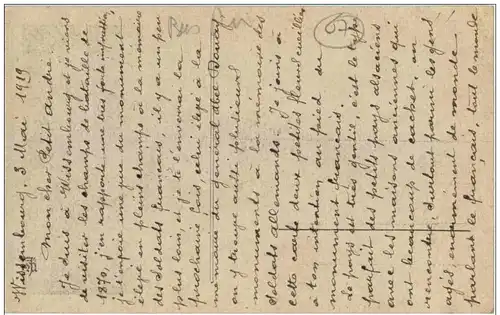 Wissembourg. 3 Mai 1919
Mon cher Petit André.
Je suis à Wissembourg et je viens
de visiter les champs de bataille de
1870, j'en rapporte une très forte impression,
je t'envoie une vue du monument
élevé en pleins champs à la mémoire
des soldats français, il y a un peu
plus loin, et je te l'enverrai la
prochaine fois, celui élevé à la
mémoire du général Abel Douay
on y trouve aussi plusieurs
monuments à la mémoire des
soldats allemands. Je joins à
cette carte deux petites fleurs cueillies
à ton intention au pied du
monument français.
Le pays est très gentil, c'est le type
parfait des petits pays alsaciens
avec les maisons anciennes qui
ont beaucoup de cachet, on
rencontre surtout parmi les gens
agés, énormément de monde
parlant le français, tout le monde